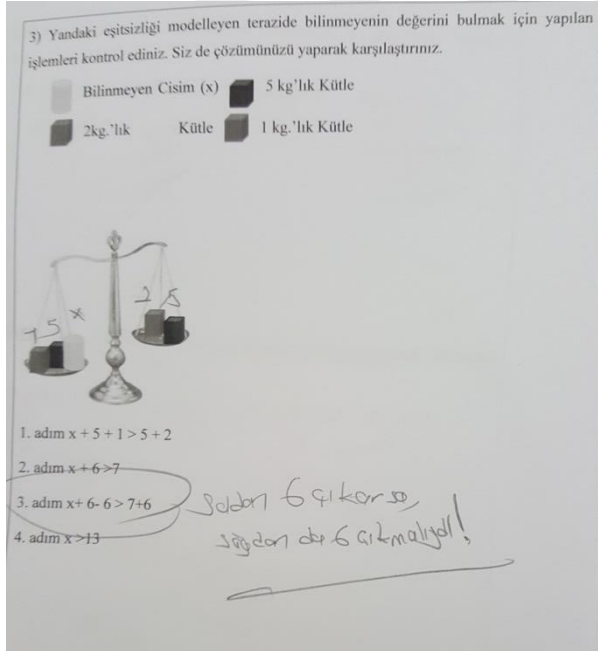 3) Yandaki eşitsizliği modelleyen terazide bilinmeyenin değerini bulmak için yapılan
işlemleri kontrol ediniz. Siz de çözümünüzü yaparak karşılaştırınız.
Bilinmeyen Cisim (x) 5 kg'lık Kütle
2kg.'lık Kütle 1 kg.'lık Kütle
2 5
1 5 x
1. adım x + 5 + 1 > 5 + 2
2. adım x + 6 >7
3. adım x+ 6- 6 > 7+6
4. adım x >13
Soldan 6 çıkarsa,
sağdan da 6 çıkmalıydı!